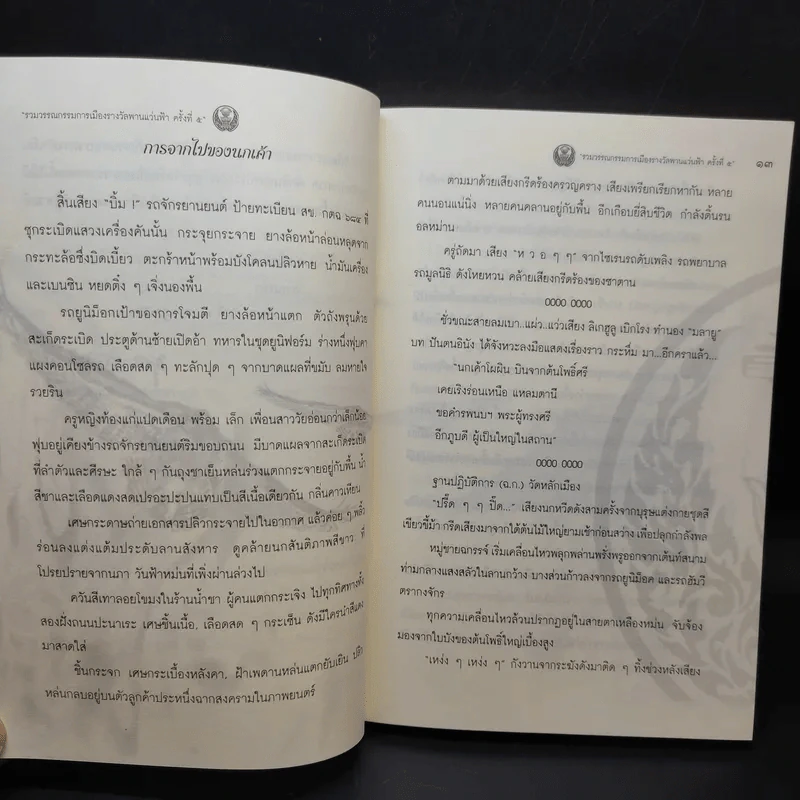 "รวมวรรณกรรมการเมืองรางวัลพานแว่นฟ้า ครั้งที่ ๕"
การจากไปของนกเค้า
สิ้นเสียง "บึ้ม !" รถจักรยานยนต์ ป้ายทะเบียน สข. กตฉ ๖๘๔ ที่
ซุกระเบิดแสวงเครื่องคันนั้น กระจุยกระจาย ยางล้อหน้าล่อนหลุดจาก
กระทะล้อซึ่งบิดเบี้ยว ตะกร้าหน้าพร้อมบังโคลนปลิวหาย น้ำมันเครื่อง
และเบนซิน หยดติ๋ง ๆ เจิ่งนองพื้น
รถยูนิม็อกเป้าของการโจมตี ยางล้อหน้าแตก ตัวถังพรุนด้วย
สะเก็ดระเบิด ประตูด้านซ้ายเปิดอ้า ทหารในชุดยูนิฟอร์ม ร่างหนึ่งฟุบคา
แผงคอนโซลรถ เลือดสด ๆ ทะลักปุด ๆ จากบาดแผลที่ขมับ ลมหายใจ
รวยริน
ครูหญิงท้องแก่แปดเดือน พร้อม เล็ก เพื่อนสาววัยอ่อนกว่าเล็กน้อย
ฟุบอยู่เคียงข้างรถจักรยานยนต์ริมขอบถนน มีบาดแผลจากสะเก็ดระเบิด
ที่ลำตัวและศีรษะ ใกล้ ๆ กันถุงชาเย็นหล่นร่วงแตกกระจายอยู่กับพื้น น้ำ
สีชาและเลือดแดงสดเปรอะปะปนแทบเป็นสีเนื้อเดียวกัน กลิ่นคาวเหียน
เศษกระดาษถ่ายเอกสารปลิวกระจายไปในอากาศ แล้วค่อย ๆ พลิ้ว
ร่อนลงแต่งแต้มประดับลานสังหาร ดูคล้ายนกสันติภาพสีขาว ที่
โปรยปรายจากนภา วันฟ้าหม่นที่เพิ่งผ่านล่วงไป
ควันสีเทาลอยโขมงในร้านน้ำชา ผู้คนแตกกระเจิง ไปทุกทิศทางทั้ง
สองฝั่งถนนปะนาเระ เศษชิ้นเนื้อ, เลือดสด ๆ กระเซ็น ดังมีใครนำสีแดง
มาสาดใส่
ชิ้นกระจก เศษกระเบื้องหลังคา, ฝ้าเพดานหล่นแตกยับเยิน
หล่นกลบอยู่บนตัวลูกค้าประหนึ่งฉากสงครามในภาพยนตร์
"รวมวรรณกรรมการเมืองรางวัลพานแว่นฟ้า ครั้งที่ ๕" ๑๓
ตามมาด้วยเสียงกรีดร้องครวญคราง เสียงเพรียกเรียกหากัน หลาย
คนนอนแน่นิ่ง หลายคนคลานอยู่กับพื้น อีกเกือบยี่สิบชีวิต กำลังดิ้นรน
อลหม่าน
ครู่ถัดมา เสียง "ห ว อ ๆ ๆ" จากไซเรนรถดับเพลิง รถพยาบาล
รถมูลนิธิ ดังโหยหวน คล้ายเสียงกรีดร้องของซาตาน
0000 0000
ชั่วขณะสายลมเบา...แผ่ว...แว่วเสียง ลิเกฮูลู เบิกโรง ทำนอง "มลายู"
บท ปันตนอินัง ได้จังหวะลงมือแสดงเรื่องราว กระหึ่ม มา...อีกคราแล้ว...
"นกเค้าโผผิน บินจากต้นโพธิ์ศรี
เคยเริงร่อนเหนือ แหลมตานี
ขอคำรพนบฯ พระผู้ทรงศรี
อีกภูบดี ผู้เป็นใหญ่ในสถาน"
0000 0000
ฐานปฏิบัติการ (ฉ.ก.) วัดหลักเมือง
"ปรี๊ด ๆ ๆ ปี๊ด..." เสียงนกหวีดดังสามครั้งจากบุรุษแต่งกายชุดสี
เขียวขี้ม้า กรีดเสียงมาจากใต้ต้นไม้ใหญ่ยามเช้าก่อนสว่าง เพื่อปลุกกำลังพล
หมู่ชายฉกรรจ์ เริ่มเคลื่อนไหวพลุกพล่านพรั่งพรูออกจากเต้นท์สนาม
ท่ามกลางแสงสลัวในลานกว้าง บางส่วนก้าวลงจากรถยูนิม็อค และรถฮัมวี
ตรากงจักร
ทุกความเคลื่อนไหวล้วนปรากฏอยู่ในสายตาเหลืองหม่น จับจ้อง
มองจากใบบังของต้นโพธิ์ใหญ่เบื้องสูง
"เหง่ง ๆ เหง่ง ๆ" กังวานจากระฆังดังมาติด ๆ ทิ้งช่วงหลังเสียง